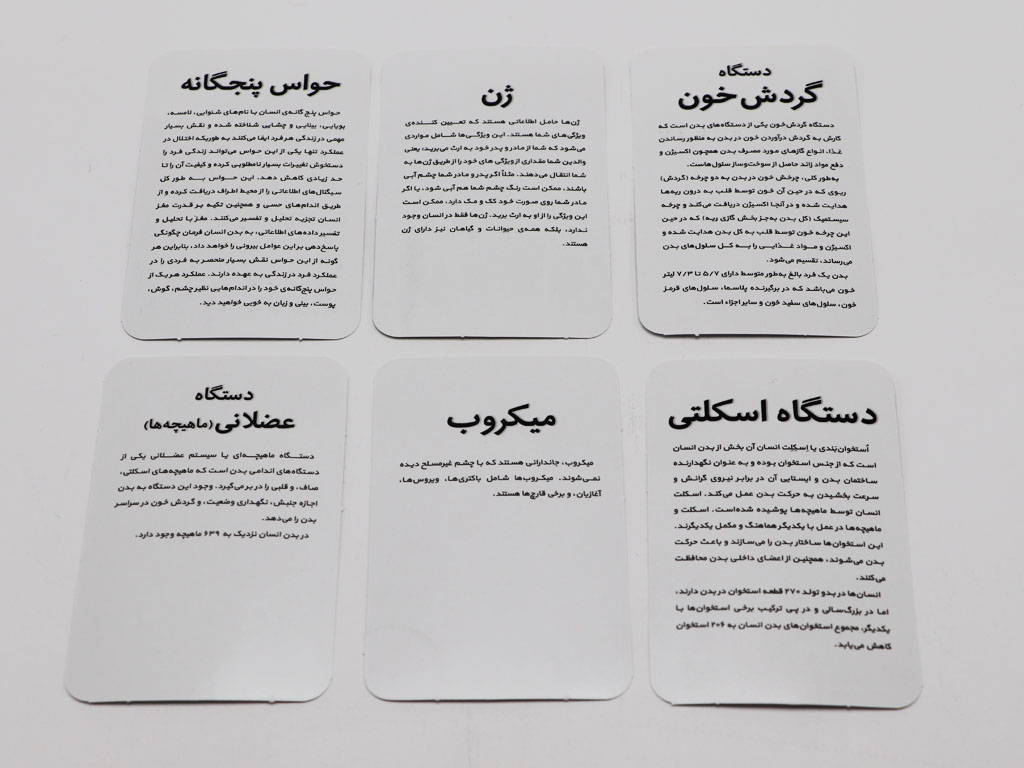 دستگاه
گردش خون
دستگاه گردش‌خون یکی از دستگاه‌های بدن است که
کارش به گردش درآوردن خون در بدن به منظور رساندن
غذا، انواع گازهای مورد مصرف بدن همچون اکسیژن و
دفع مواد زائد حاصل از سوخت‌وساز سلول‌هاست.
به‌طور کلی، چرخش خون در بدن به دو چرخه (گردش)
ریوی که در حین آن خون توسط قلب به درون ریه‌ها
هدایت شده و در آنجا اکسیژن دریافت می‌کند و چرخه
سیستمیک (کل بدن به‌جز بخش گازی ریه) که در حین
این چرخه خون توسط قلب به کل بدن هدایت شده و
اکسیژن و مواد غذایی را به کل سلول‌های بدن
می‌رساند، تقسیم می‌شود.
بدن یک فرد بالغ به‌طور متوسط دارای ۵/۷ تا ۷/۳ لیتر
خون می‌باشد که در برگیرنده پلاسما، سلول‌های قرمز
خون، سلول‌های سفید خون و سایر اجزاء است.
ژن
ژن‌ها حامل اطلاعاتی هستند که تعیین کننده‌ی
ویژگی‌های شما هستند. این ویژگی‌ها شامل مواردی
می‌شود که شما از مادر و پدر خود به ارث می‌برید، یعنی
والدین شما مقداری از ویژگی های خود را از طریق ژن‌ها به
شما انتقال می‌دهند. مثلاً اگر پدر و مادر شما چشم آبی
باشند، ممکن است رنگ چشم شما هم آبی شود، یا اگر
مادر شما روی صورت خود کک و مک دارد، ممکن است
این ویژگی را از او به ارث ببرید. ژن‌ها فقط در انسان وجود
ندارد، بلکه همه‌ی حیوانات و گیاهان نیز دارای ژن
هستند.
حواس پنجگانه
حواس پنج گانه‌ی انسان با نام‌های شنوایی، لامسه،
بویایی، بینایی و چشایی شناخته شده و نقش بسیار
مهمی در زندگی هر فرد ایفا می‌کنند به طوریکه اختلال در
عملکرد تنها یکی از این حواس می‌تواند زندگی فرد را
دستخوش تغییرات بسیار نامطلوبی کرده و کیفیت آن را تا
حد زیادی کاهش دهد. این حواس به طور کل
سیگنال‌های اطلاعاتی را از محیط اطراف دریافت کرده و از
طریق اندام‌های حسی و همچنین تکیه بر قدرت مغز
انسان تجزیه تحلیل و تفسیر می‌کنند. مغز با تحلیل و
تفسیر داده‌های اطلاعاتی، به بدن انسان فرمان چگونگی
پاسخ‌دهی بر این عوامل بیرونی را خواهد داد، بنابراین هر
گونه از این حواس نقش بسیار منحصر به فردی را در
عملکرد فرد در زندگی به عهده دارند. عملکرد هر یک از
حواس پنج‌گانه‌ی خود را در اندام‌هایی نظیر چشم، گوش،
پوست، بینی و زبان به خوبی خواهید دید.
دستگاه اسکلتی
اُستخوان‌بَندی یا اِسکِلِت انسان آن بخش از بدن انسان
است که از جنس استخوان بوده و به عنوان نگهدارنده
ساختمان بدن و ایستایی آن در برابر نیروی گرانش و
سرعت بخشیدن به حرکت بدن عمل می‌کند. اسکلت
انسان توسط ماهیچه‌ها پوشیده شده‌است. اسکلت و
ماهیچه‌ها در عمل با یکدیگر هماهنگ و مکمل یکدیگرند.
این استخوان‌ها ساختار بدن را می‌سازند و باعث حرکت
بدن می‌شوند، همچنین از اعضای داخلی بدن محافظت
می‌کنند.
انسان‌ها در بدو تولد ۲۷۰ قطعه استخوان در بدن دارند،
اما در بزرگ‌سالی و در پی ترکیب برخی استخوان‌ها با
یکدیگر، مجموع استخوان‌های بدن انسان به ۲۰۶ استخوان
کاهش می‌یابد.
میکروب
میکروب، جاندارانی هستند که با چشم غیرمسلح دیده
نمی‌شوند. میکروب‌ها شامل باکتری‌ها، ویروس‌ها،
آغازیان، و برخی قارچ‌ها هستند.
دستگاه
عضلانی (ماهیچه‌ها)
دستگاه ماهیچه‌ای یا سیستم عضلانی یکی از
دستگاه‌های اندامی بدن است که ماهیچه‌های اسکلتی،
صاف، و قلبی را در بر می‌گیرد. وجود این دستگاه به بدن
اجازه جنبش، نگهداری وضعیت، و گردش خون در سراسر
بدن را می‌دهد.
در بدن انسان نزدیک به ۶۳۹ ماهیچه وجود دارد.